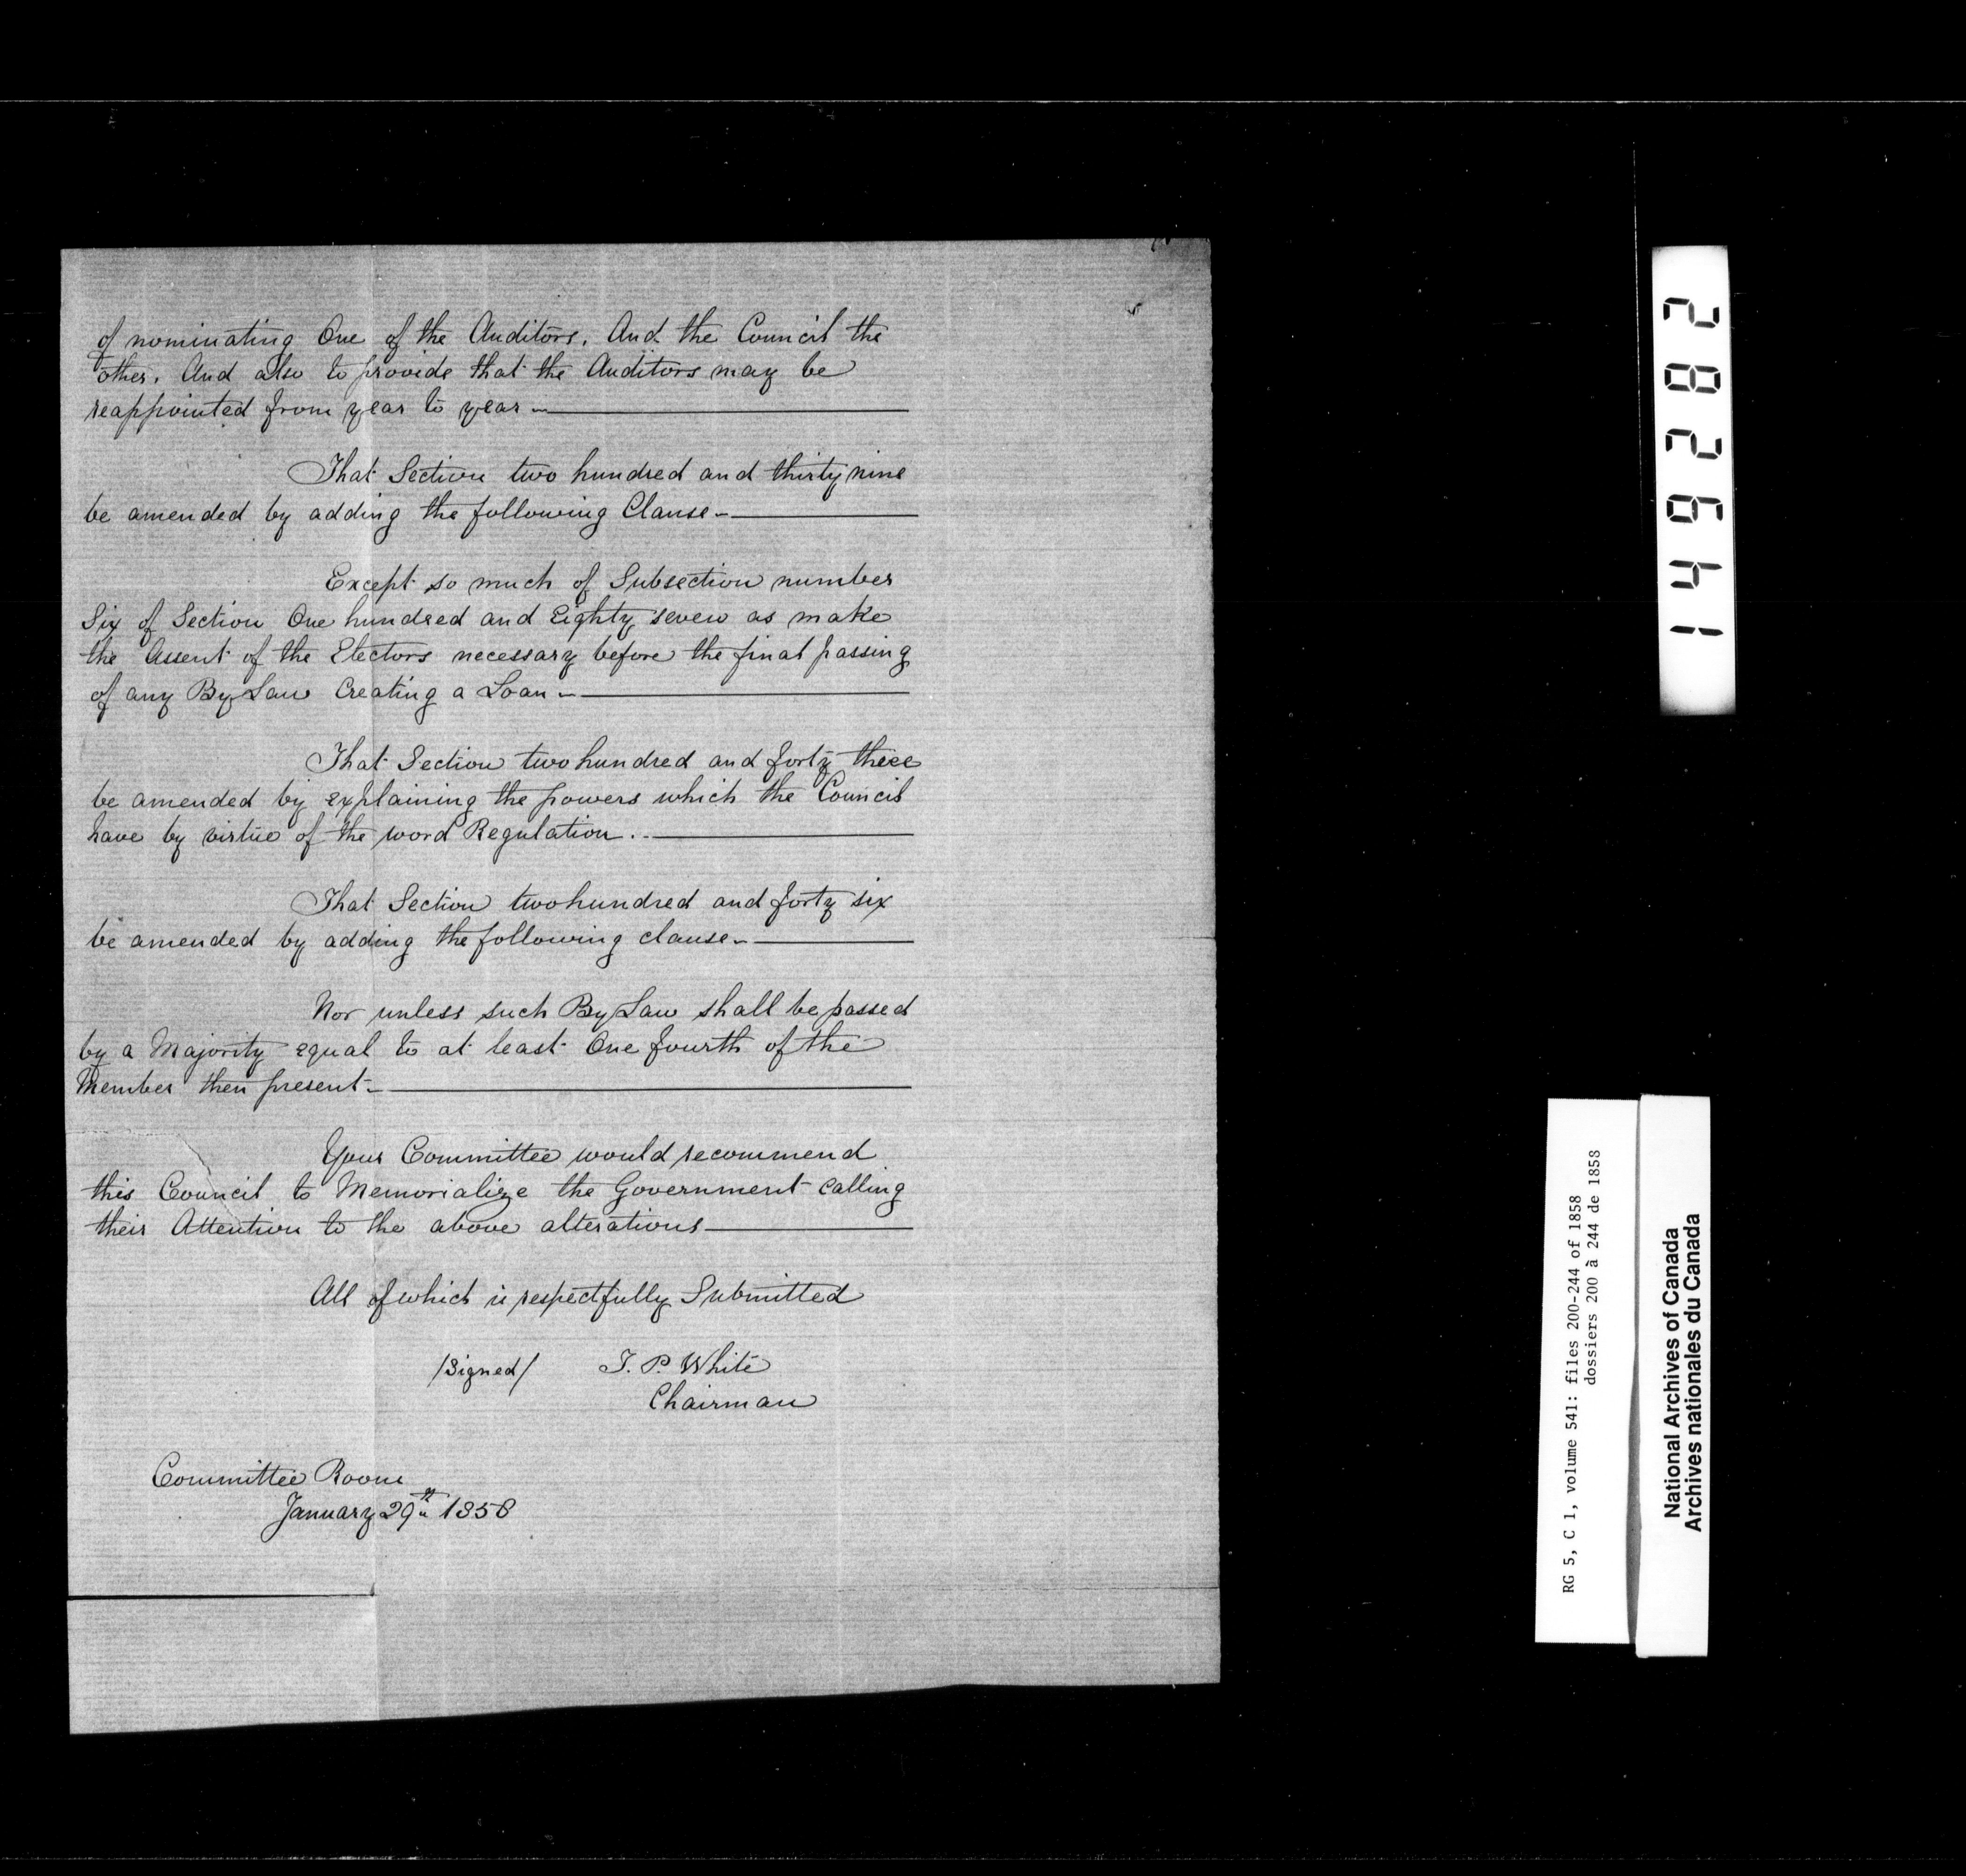 of nominating One of the Auditors, And the Council the
other. And also to provide that the Auditors may be
reappointed from year to year -
That Section two hundred and thirty nine
be amended by adding the following Clause -
Except so much of Subsection number
Six of Section One hundred and Eighty seven as make
the Assent of the Electors necessary before the final passing
of any By Law Creating a Loan -
That Section two hundred and forty three
be amended by explaining the powers which the Council
have by virtue of the word Regulation. -
That Section two hundred and forty six
be amended by adding the following clause -
Nor unless such By Law shall be passed
by a Majority equal to at least One fourth of the
Member then present -
Your Committee would recommend
this Council to Memorialize the Government calling
their Attention to the above alterations
All of which is respectfully Submitted
/Signed/ T. P. White
Chairman
Committee Room
January 29th 1858
149282
RG 5, C 1, volume 541: files 200-244 of 1858
dossiers 200 à 244 de 1858
National Archives of Canada
Archives nationales du Canada